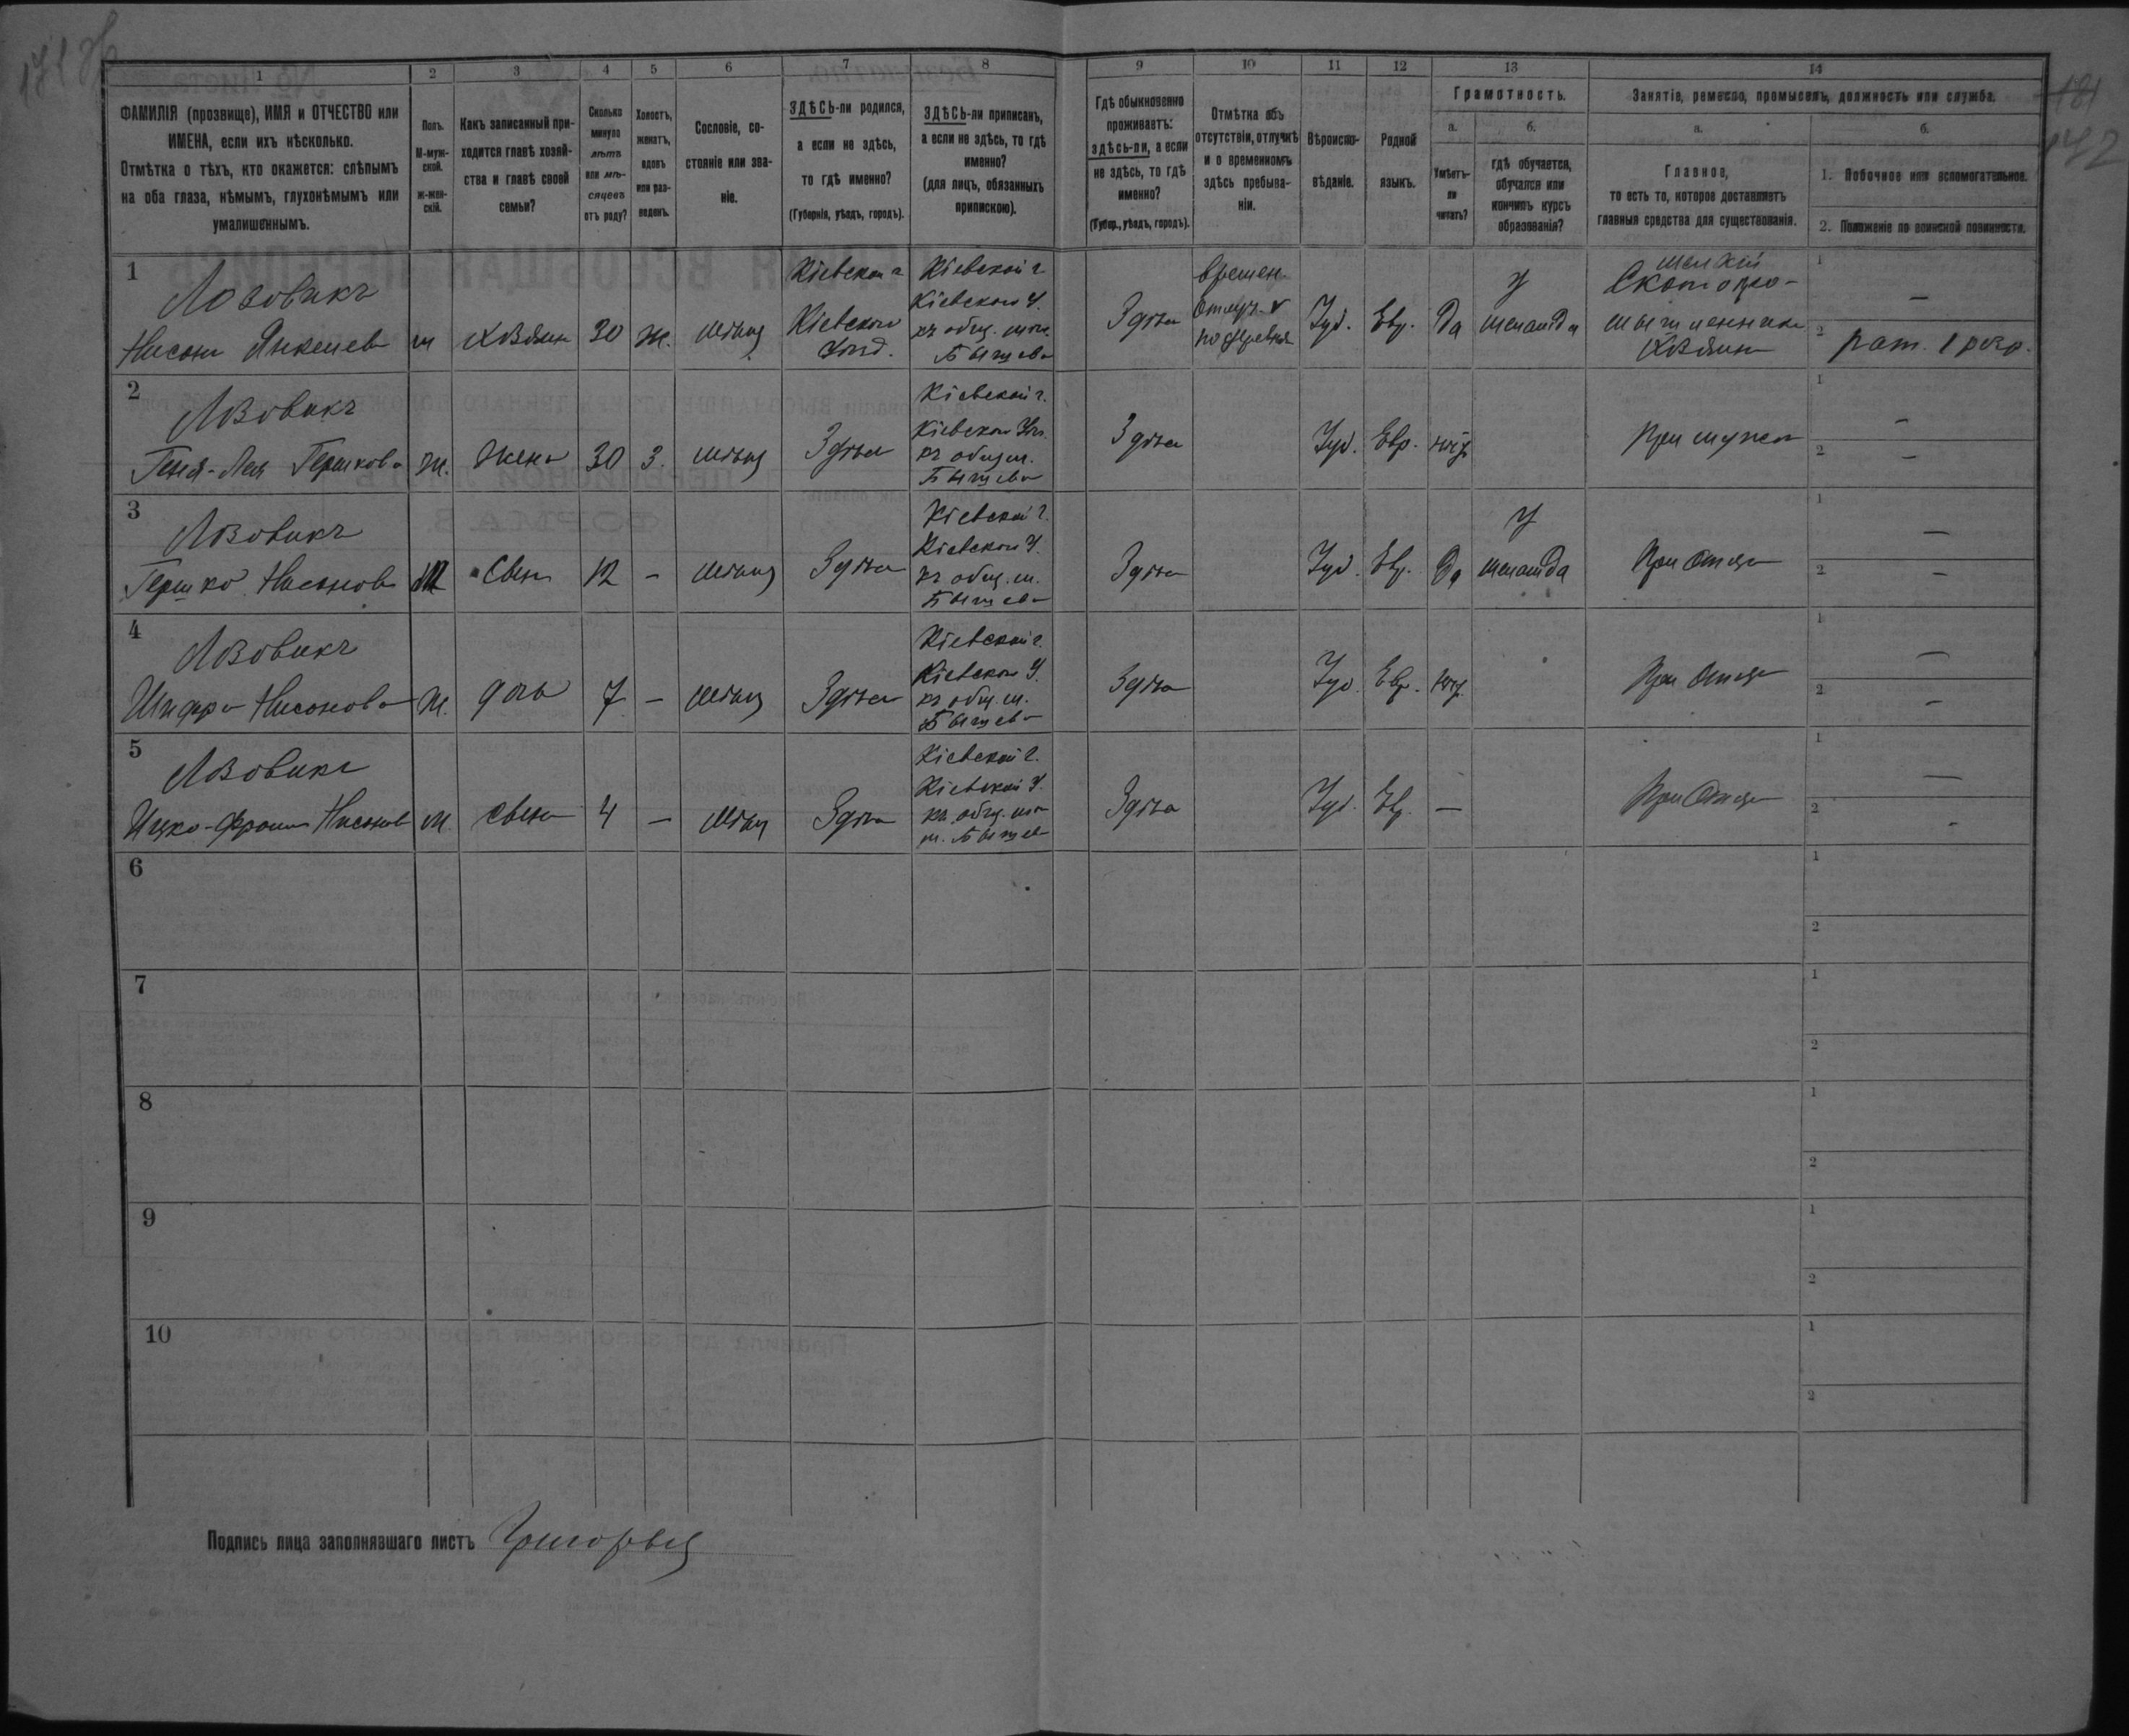 171 об
181
172
1 2 3 4 5 6 7 8 9 10 11 12 13 14
ФАМИЛІЯ (прозвище), ИМЯ и ОТЧЕСТВО или
ИМЕНА, если ихъ нѣсколько.
Отмѣтка о тѣхъ, кто окажется: слѣпымъ
на оба глаза, нѣмымъ, глухонѣмымъ или
умалишеннымъ.
Полъ.
М-муж-
ской.
ж-жен-
скій.
Какъ записанный при-
ходится главѣ хозяй-
ства и главѣ своей
семьи?
Сколько
минуло
лѣтъ
или мѣ-
сяцевъ
отъ роду?
Холостъ,
женатъ,
вдовъ
или раз-
веденъ.
Сословіе, со-
стояніе или зва-
ніе.
ЗДѢСЬ-ли родился,
а если не здѣсь,
то гдѣ именно?
(Губернія, уѣздъ, городъ).
ЗДѢСЬ-ли приписанъ,
а если не здѣсь, то гдѣ
именно?
(для лицъ, обязанныхъ
припискою).
Гдѣ обыкновенно
проживаетъ:
здѣсь-ли, а если
не здѣсь, то гдѣ
именно?
(Губер., уѣздъ, городъ).
Отмѣтка объ
отсутствіи, отлучкѣ
и о временномъ
здѣсь пребыва-
ніи.
Вѣроиспо-
вѣданіе.
Родной
языкъ.
Грамотность.
а.
Умѣетъ-
ли
читать?
б.
гдѣ обучается,
обучался или
кончилъ курсъ
образованія?
Занятіе, ремесло, промыселъ, должность или служба.
а.
Главное,
то есть то, которое доставляетъ
главныя средства для существованія.
б.
1. Побочное или вспомогательное.
2. Положеніе по воинской повинности.
1
Лозовикъ
Нисонъ Янкелевъ
м
хозяинъ
30
ж.
мѣщ
Кіевской г
Кіевского
уѣзд.
Кіевской г
Кіевского У.
къ общ. мѣщ
Бышева
Здѣсь
времен
Отлуч. в
по деревня
Іуд.
Евр.
Да
У
меламда
мелкій
Скотопро-
мышленникъ
хозяинъ
1 —
2 рат. 1 разр.
2
Лозовикъ
Геня-Лея Гершкова
ж.
жена
30
з.
мѣщ
Здѣсь
Кіевской г.
Кіевского Уѣз.
къ общ. м.
Бышева
Здѣсь
Іуд.
Евр.
нѣт
При мужѣ
1 —
2 —
3
Лозовикъ
Гершко Нисоновъ
М
Сынъ
12
-
мѣщ
Здѣсь
Кіевской г.
Кіевского У.
къ общ. м.
Бышева
Здѣсь
Іуд.
Евр.
Да
У
меламда
При отцѣ
1 —
2 —
4
Лозовикъ
Шифра Нисонова
ж.
дочь
7
-
мѣщ
Здѣсь
Кіевской г.
Кіевского У.
къ общ. м.
Бышева
Здѣсь
Іуд.
Евр.
нѣт.
При отцѣ
1 —
2 —
5
Лозовикъ
Ицко-Фроим Нисонов
м.
сынъ
4
-
мѣщ
Здѣсь
Кіевской г.
Кіевской У.
къ общ.
м. Бышев
Здѣсь
Іуд.
Евр.
—
При отцѣ
1 —
2 -
6
1
2
7
1
2
8
1
2
9
1
2
10
1
2
Подпись лица заполнявшаго листъ